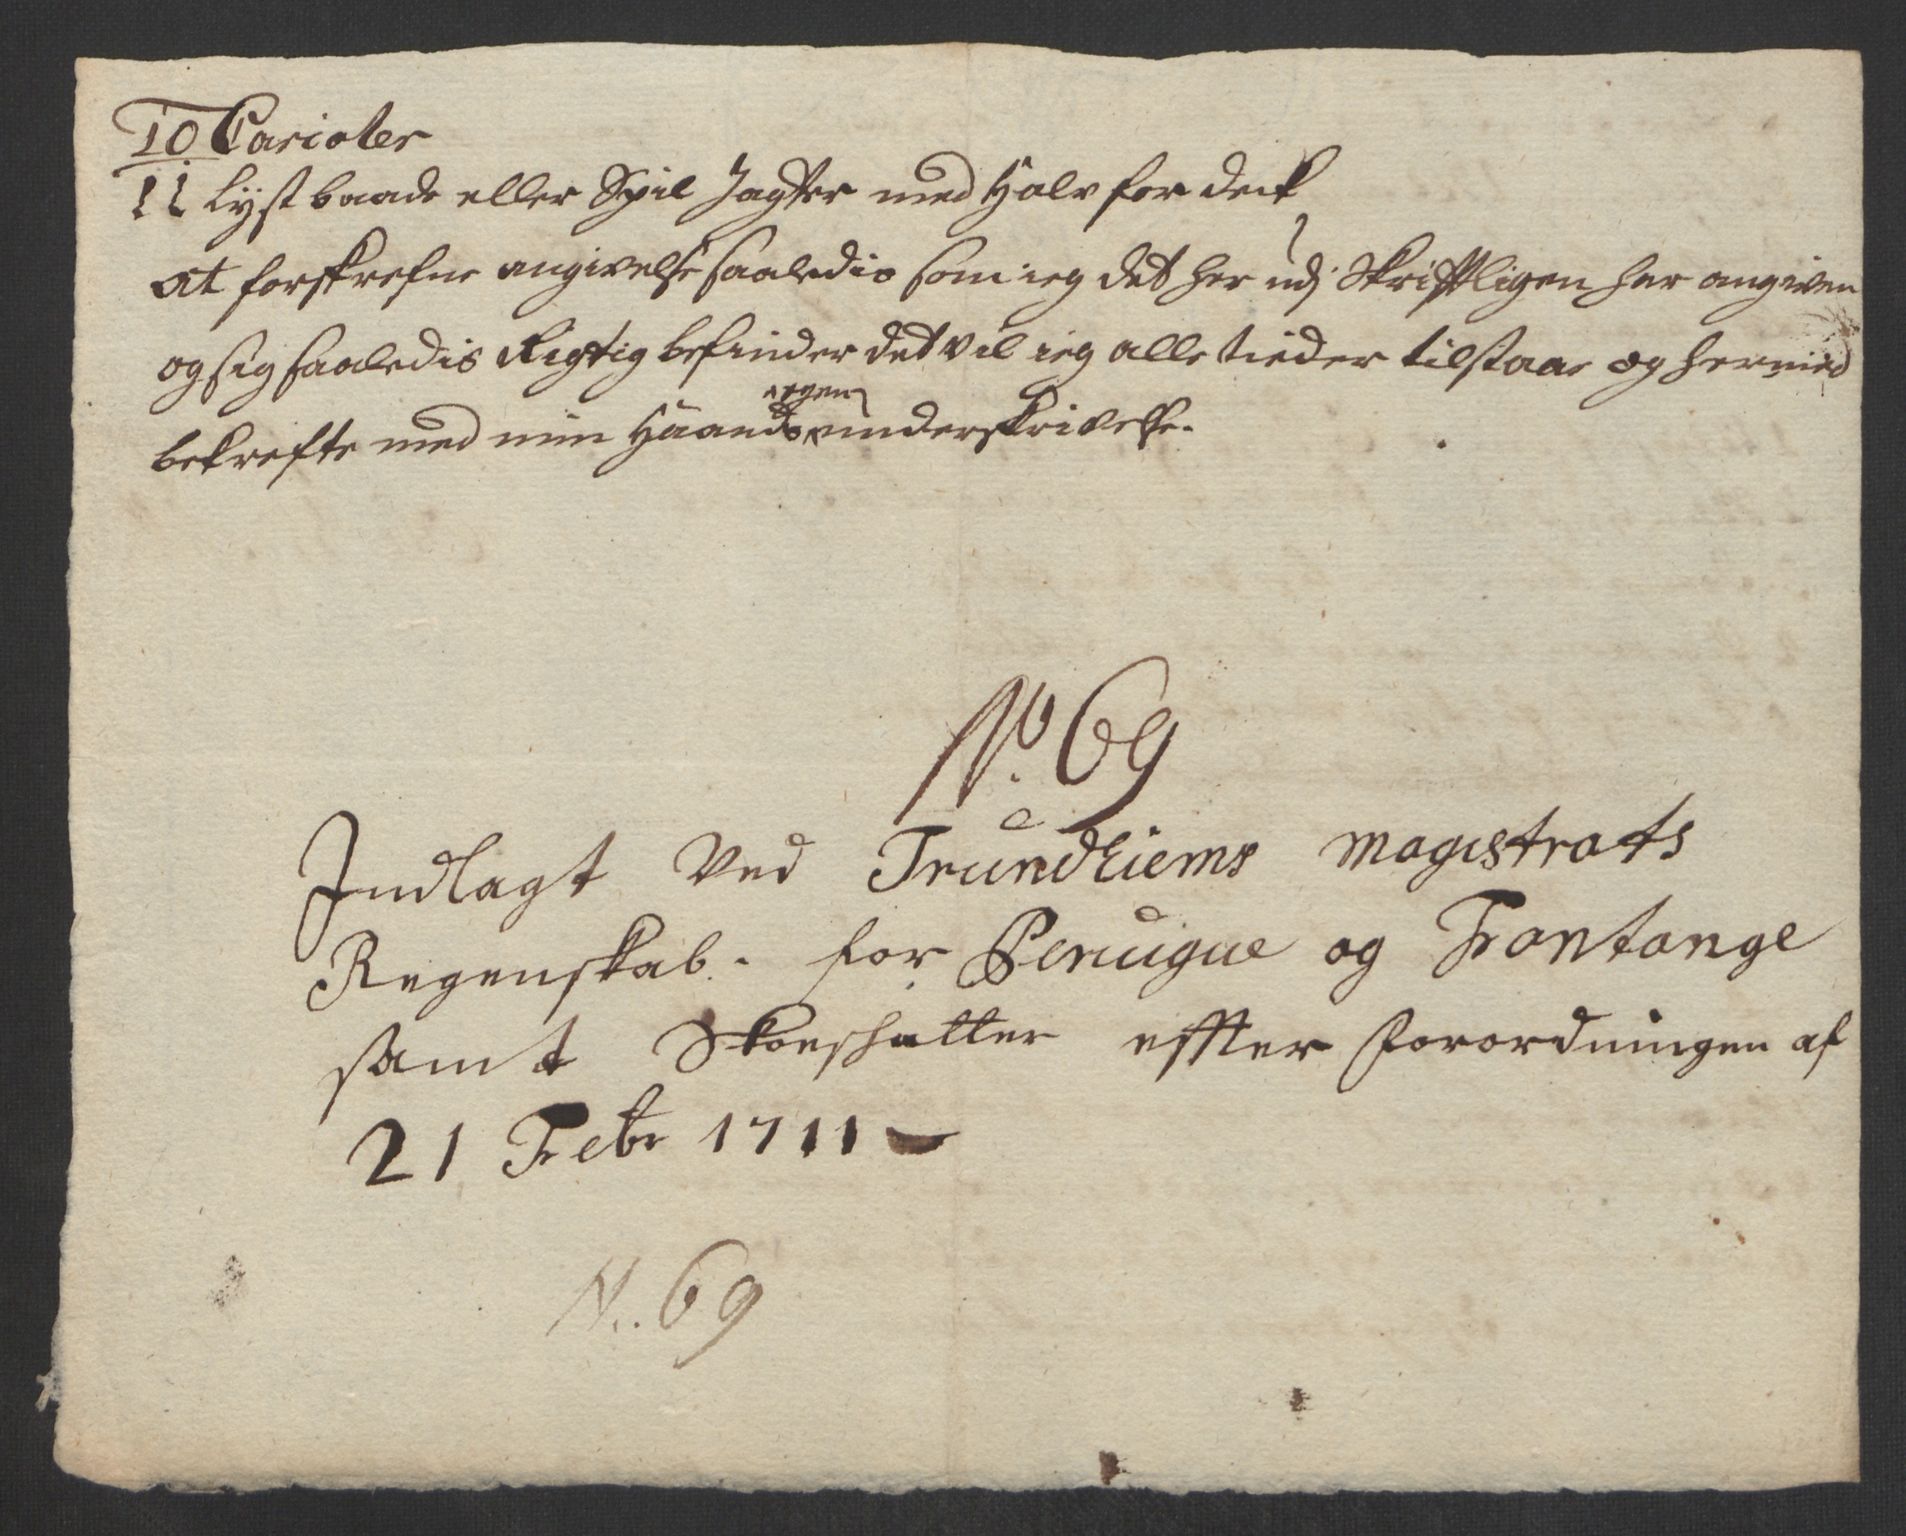 10 Carioler
11 Lystbaade eller Spil Jagter med Halv for deck
at forskrefne angivelse saaledis som ieg det her udj Skriftligen har angiven
og sig saaledis Rigtig befinder det vil ieg alle tieder tilstaae og hermed
bekrefte med min Haands egen underskrivelse.
No. 69
Indlagt Ved Trundhiems Magistrats
Regenskab. for Peruque og Frontange
samt Skoeshatter effter Forordningen af
21 Febr 1711
N. 69